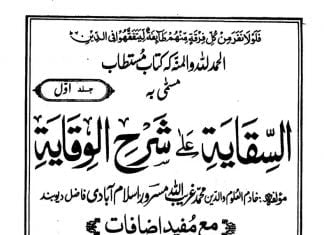 فلولا نفر من كل فرقة منهم طائفة ليتفقهوا في الدين
الحمد لله والمنہ کہ کتاب مستطاب
مسمّٰی بہ
جلد اوّل
السِّقاية علىٰ شرح الوقاية
مؤلفہ: خادم العلوم والدین محمد غریب اللہ مسرور اسلام آبادی فاضل دیوبند
مع مفید اضافات